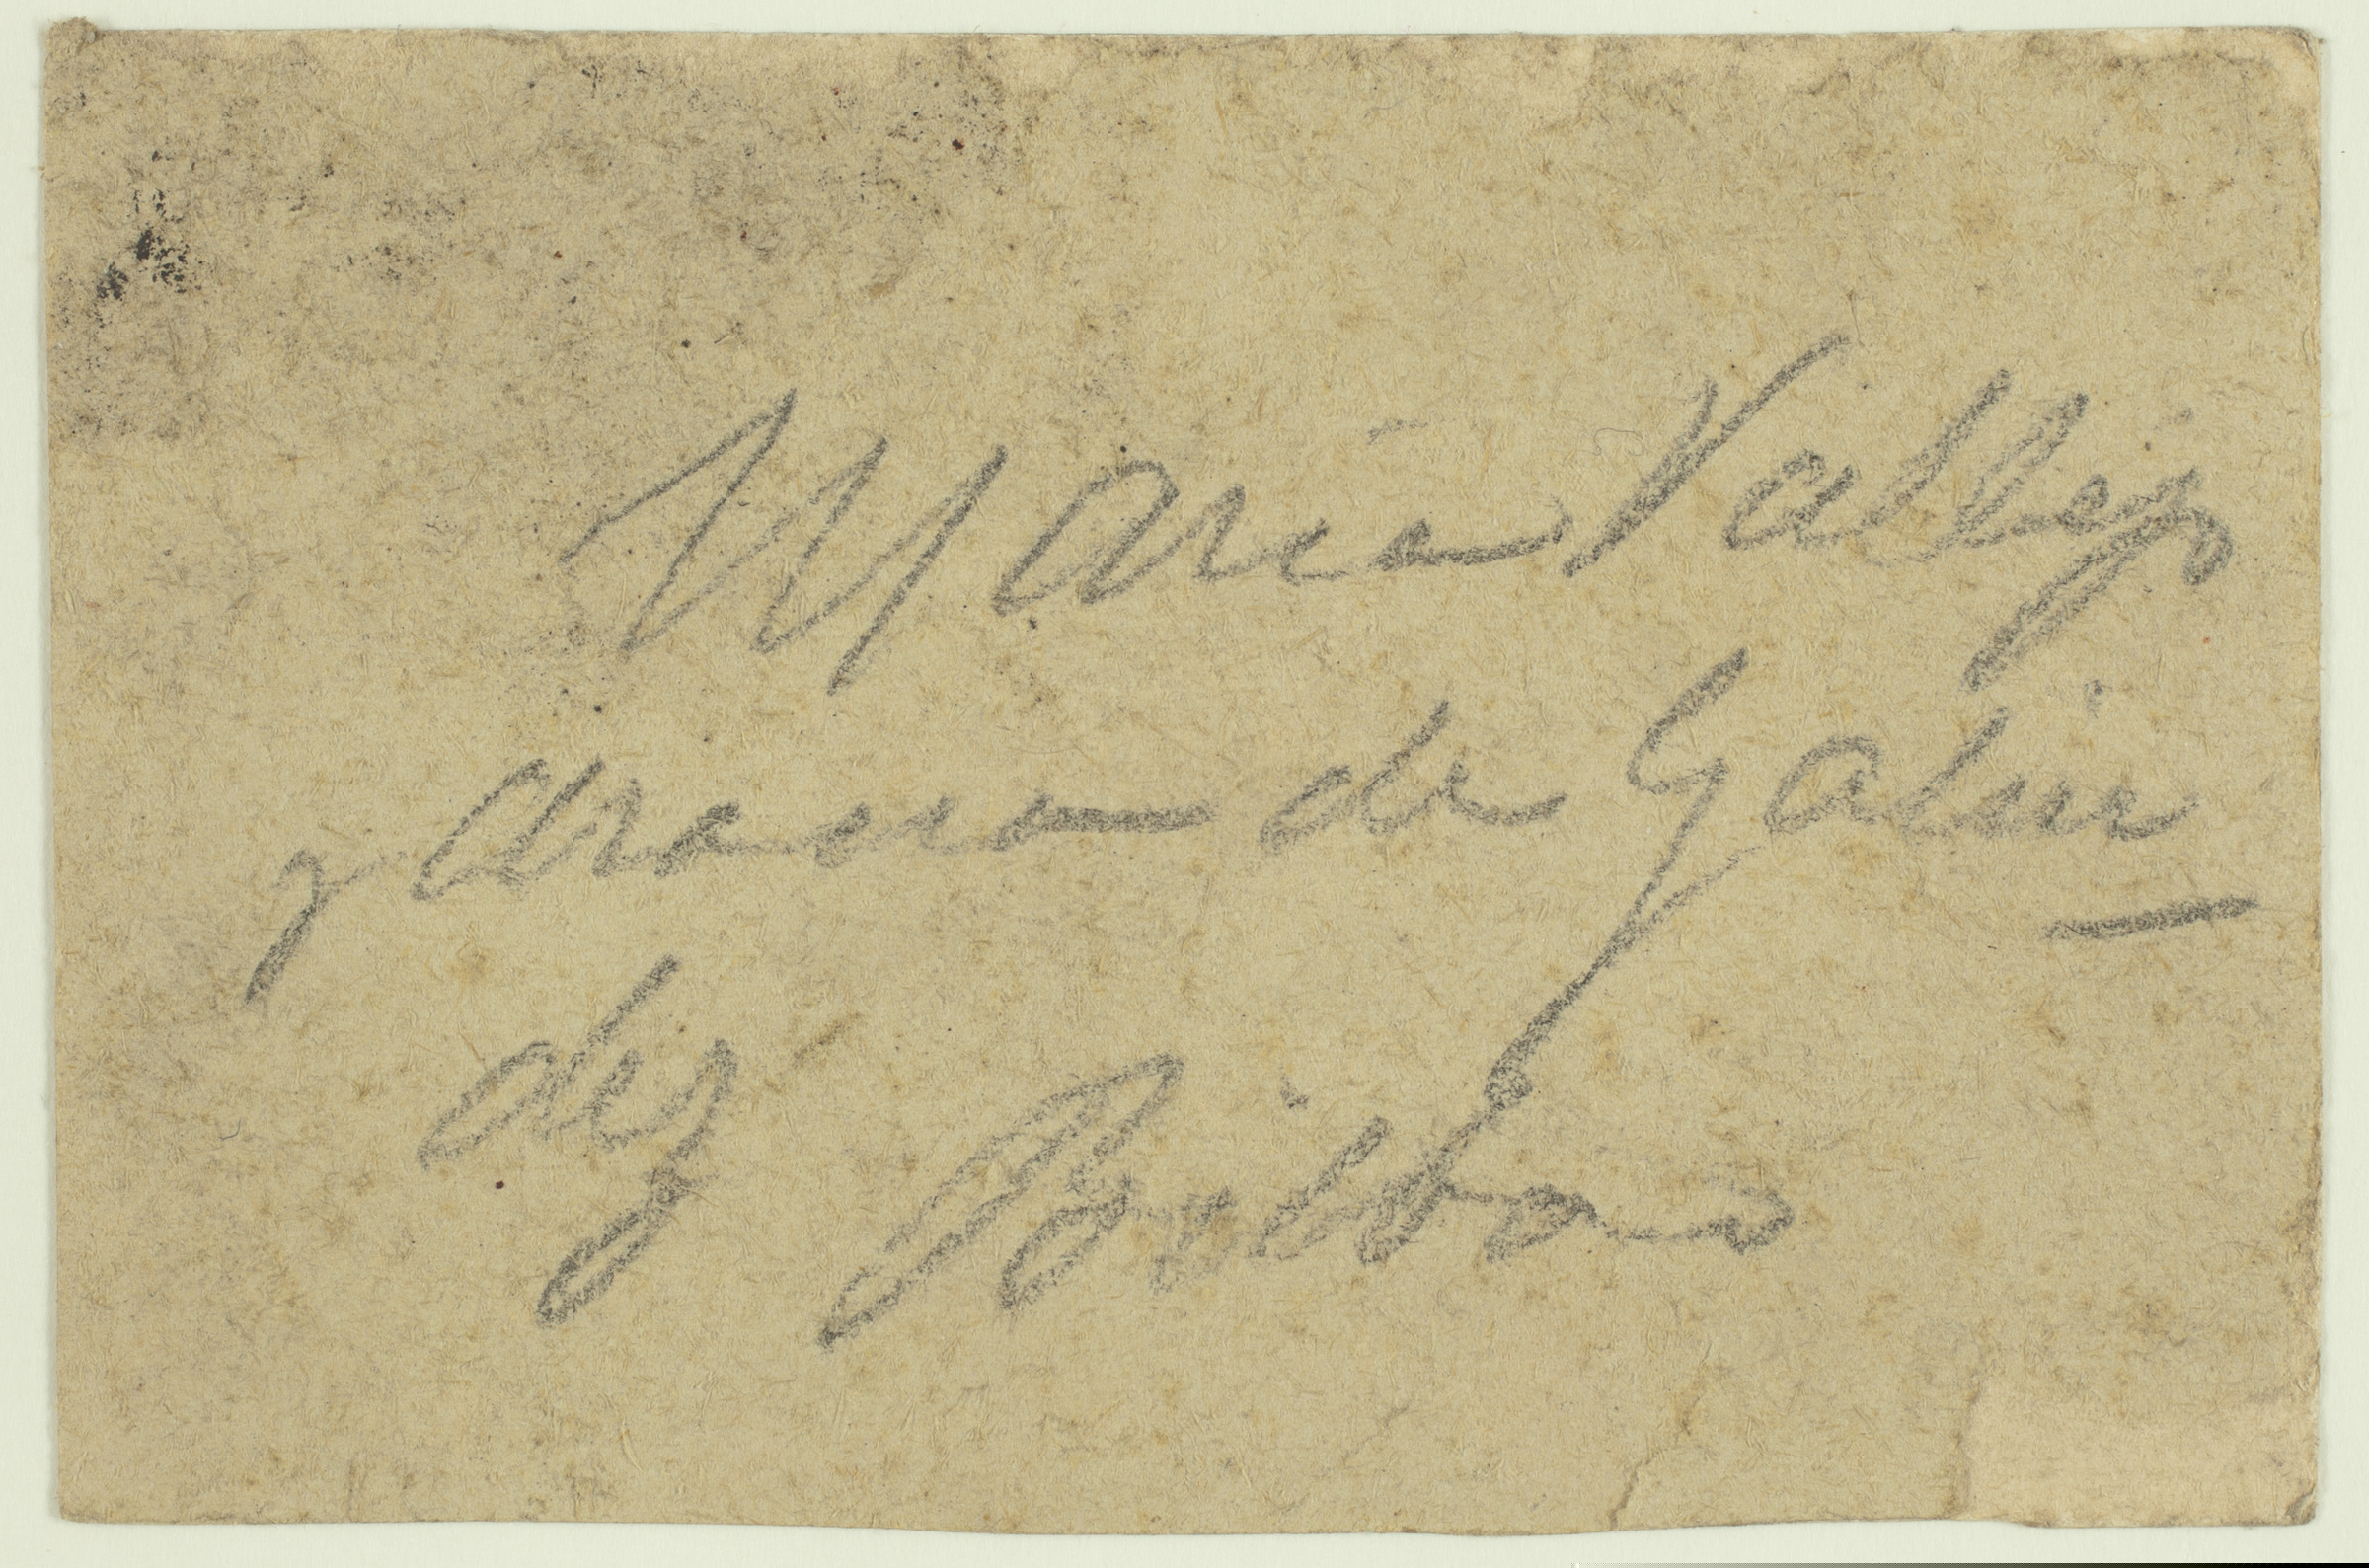 Maria Vallejo
y Arana de Galin
dez
Bilbao